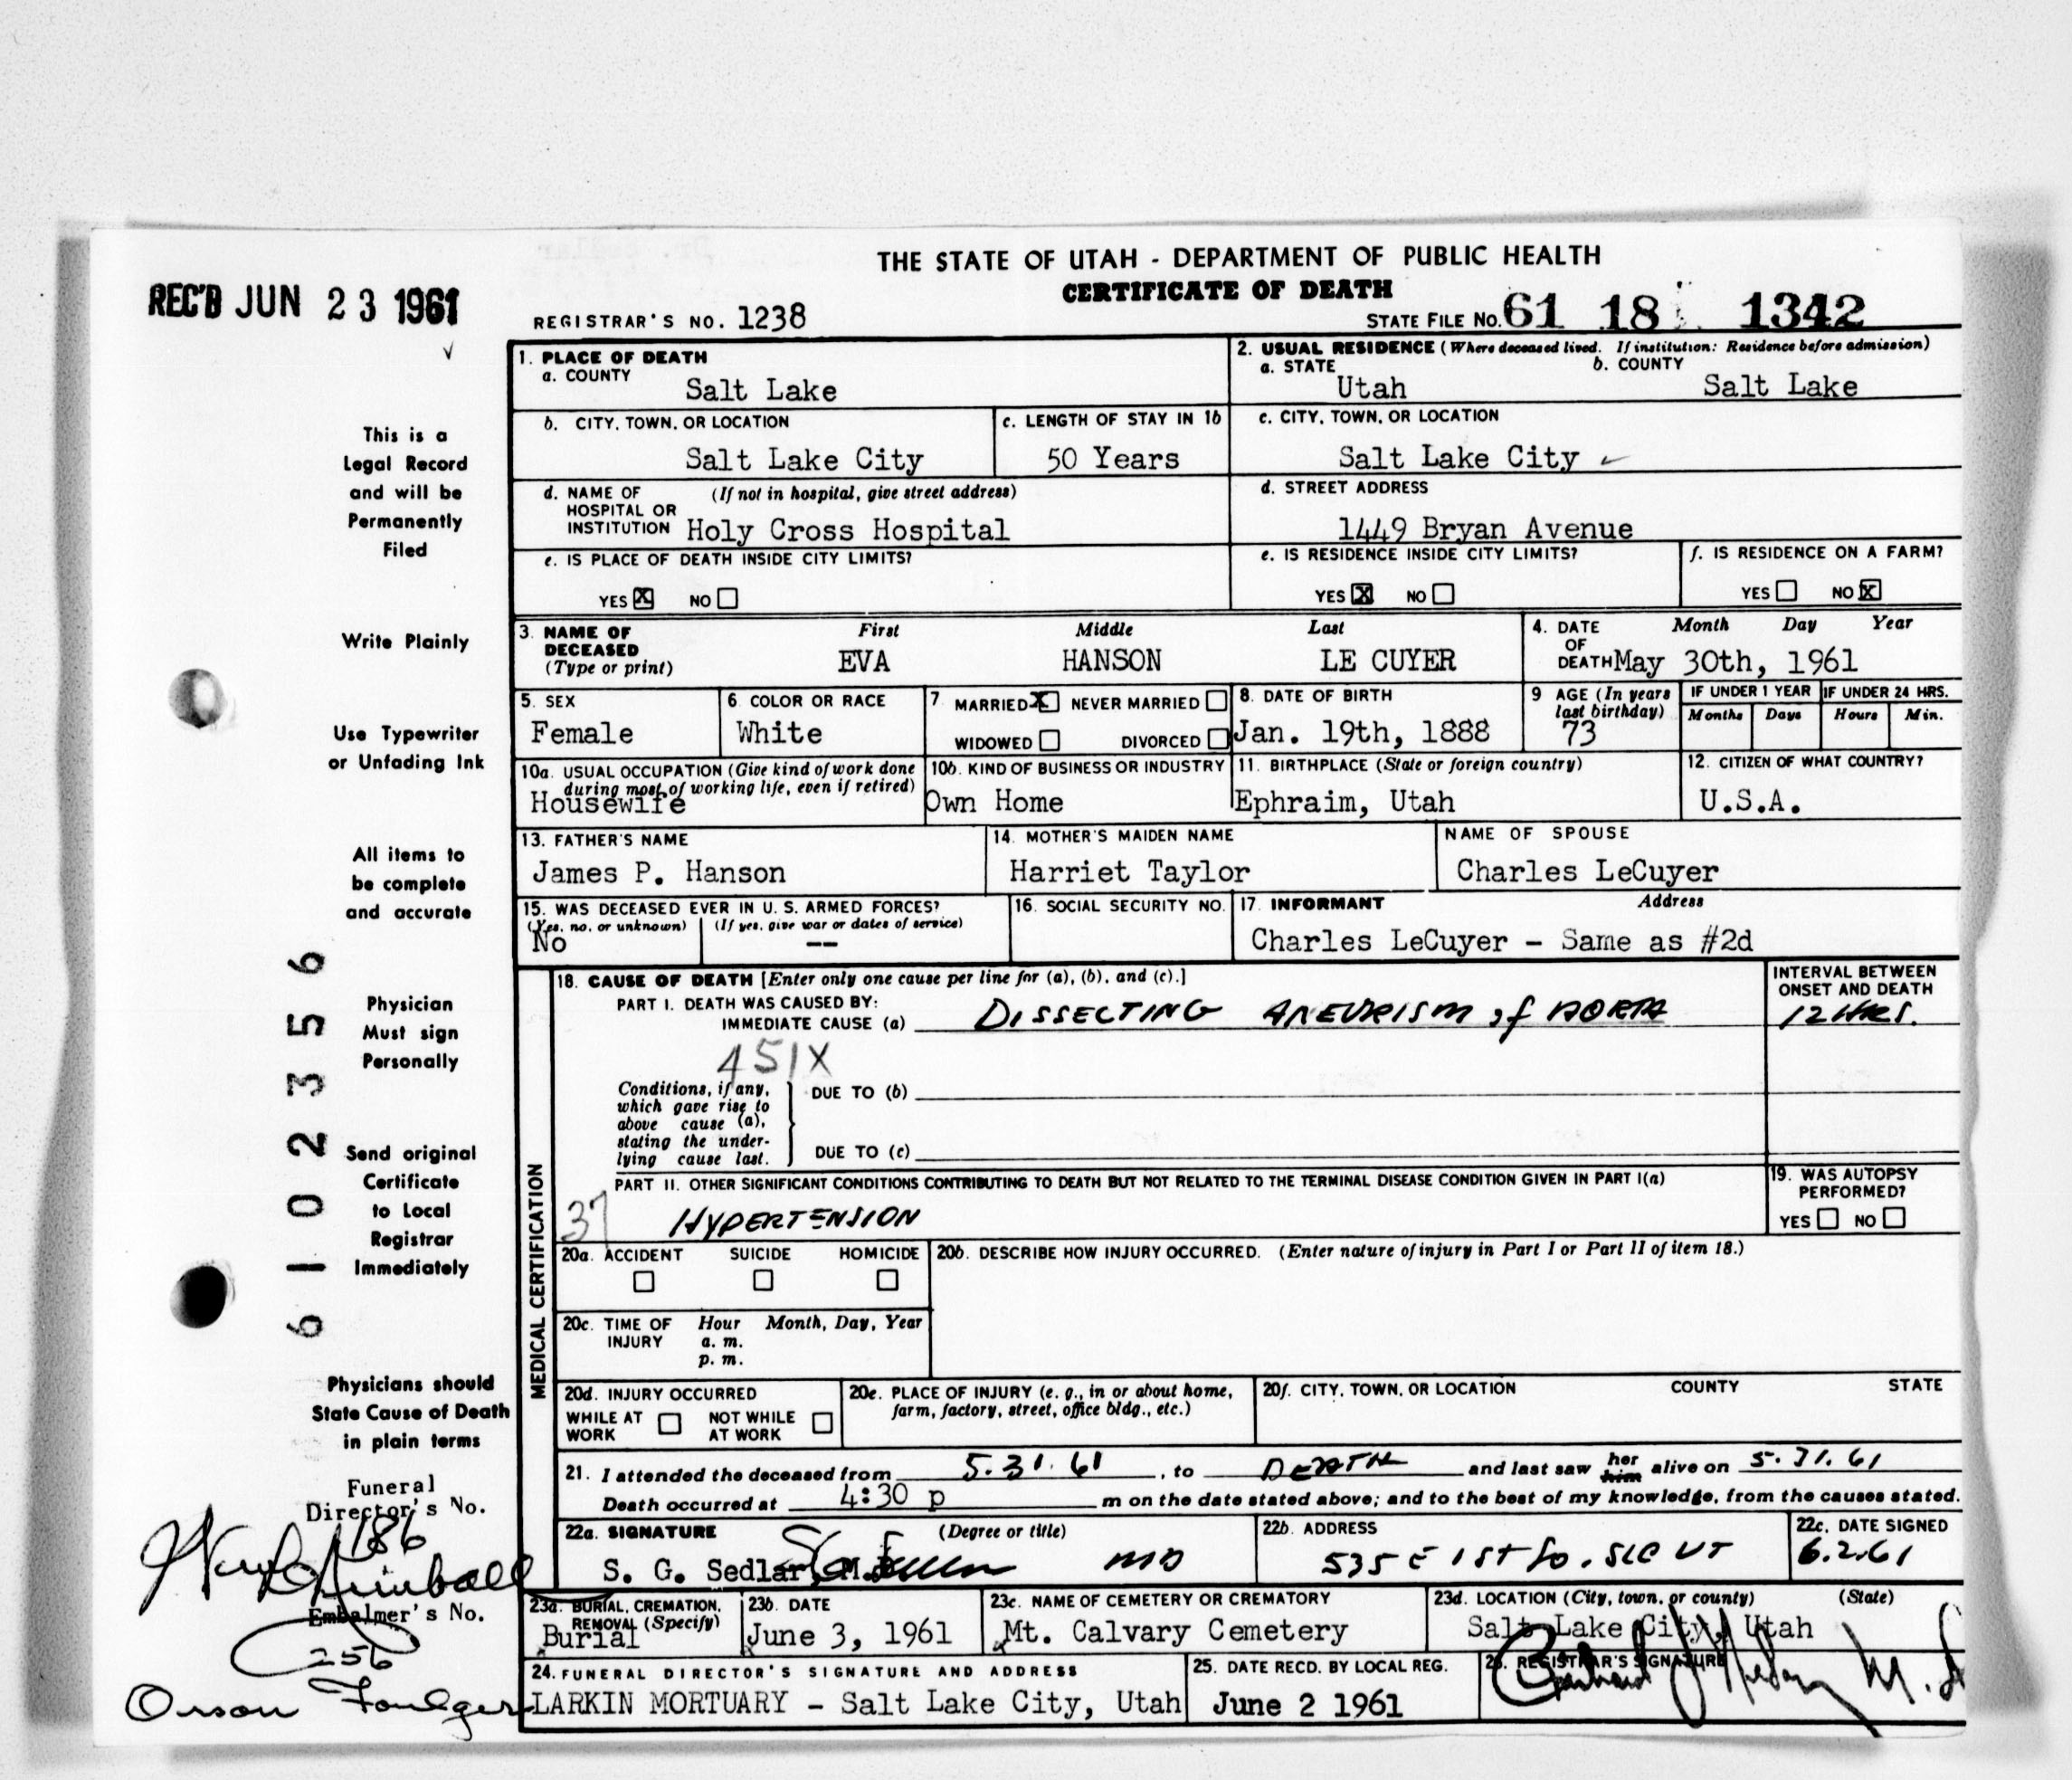 THE STATE OF UTAH - DEPARTMENT OF PUBLIC HEALTH
CERTIFICATE OF DEATH
REC'D JUN 23 1961
REGISTRAR'S NO. 1238
STATE FILE NO. 61 18 1342
This is a
Legal Record
and will be
Permanently
Filed
Write Plainly
Use Typewriter
or Unfading Ink
All items to
be complete
and accurate
Physician
Must sign
Personally
Send original
Certificate
to Local
Registrar
Immediately
Physicians should
State Cause of Death
in plain terms
Funeral
Director's No.
186
Kimball
Embalmer's No.
256
Orson Foulger
6102356
1. PLACE OF DEATH
a. COUNTY
Salt Lake
2. USUAL RESIDENCE (Where deceased lived. If institution: Residence before admission)
a. STATE b. COUNTY
Utah Salt Lake
b. CITY, TOWN, OR LOCATION
Salt Lake City
c. LENGTH OF STAY IN 1b
50 Years
c. CITY, TOWN, OR LOCATION
Salt Lake City
d. NAME OF HOSPITAL OR INSTITUTION (If not in hospital, give street address)
Holy Cross Hospital
d. STREET ADDRESS
1449 Bryan Avenue
e. IS PLACE OF DEATH INSIDE CITY LIMITS?
YES X NO
e. IS RESIDENCE INSIDE CITY LIMITS?
YES X NO
f. IS RESIDENCE ON A FARM?
YES NO X
3. NAME OF DECEASED (Type or print)
First Middle Last
EVA HANSON LE CUYER
4. DATE OF DEATH Month Day Year
May 30th, 1961
5. SEX
Female
6. COLOR OR RACE
White
7 MARRIED X NEVER MARRIED
WIDOWED DIVORCED
8. DATE OF BIRTH
Jan. 19th, 1888
9 AGE (In years last birthday)
73
IF UNDER 1 YEAR IF UNDER 24 HRS.
Months Days Hours Min.
10a. USUAL OCCUPATION (Give kind of work done during most of working life, even if retired)
Housewife
10b. KIND OF BUSINESS OR INDUSTRY
Own Home
11. BIRTHPLACE (State or foreign country)
Ephraim, Utah
12. CITIZEN OF WHAT COUNTRY?
U.S.A.
13. FATHER'S NAME
James P. Hanson
14. MOTHER'S MAIDEN NAME
Harriet Taylor
NAME OF SPOUSE
Charles LeCuyer
15. WAS DECEASED EVER IN U. S. ARMED FORCES?
(Yes, no, or unknown) (If yes, give war or dates of service)
No --
16. SOCIAL SECURITY NO.
17. INFORMANT Address
Charles LeCuyer - Same as #2d
MEDICAL CERTIFICATION
18. CAUSE OF DEATH [Enter only one cause per line for (a), (b), and (c).]
INTERVAL BETWEEN ONSET AND DEATH
PART I. DEATH WAS CAUSED BY:
IMMEDIATE CAUSE (a) DISSECTING ANEURISM of AORTA
12 HRS.
451X
Conditions, if any, which gave rise to above cause (a), stating the underlying cause last.
DUE TO (b)
DUE TO (c)
PART II. OTHER SIGNIFICANT CONDITIONS CONTRIBUTING TO DEATH BUT NOT RELATED TO THE TERMINAL DISEASE CONDITION GIVEN IN PART I(a)
37 HYPERTENSION
19. WAS AUTOPSY PERFORMED?
YES NO
20a. ACCIDENT SUICIDE HOMICIDE
20b. DESCRIBE HOW INJURY OCCURRED. (Enter nature of injury in Part I or Part II of item 18.)
20c. TIME OF INJURY Hour Month, Day, Year
a. m.
p. m.
20d. INJURY OCCURRED
WHILE AT WORK NOT WHILE AT WORK
20e. PLACE OF INJURY (e. g., in or about home, farm, factory, street, office bldg., etc.)
20f. CITY, TOWN, OR LOCATION COUNTY STATE
21. I attended the deceased from 5.31.61, to DEATH and last saw her him alive on 5.31.61
Death occurred at 4:30 p m on the date stated above; and to the best of my knowledge, from the causes stated.
22a. SIGNATURE (Degree or title)
S. G. Sedlar, M.D. MD
22b. ADDRESS
535 E 1st So. SLC UT
22c. DATE SIGNED
6.2.61
23a. BURIAL, CREMATION, REMOVAL (Specify)
Burial
23b. DATE
June 3, 1961
23c. NAME OF CEMETERY OR CREMATORY
Mt. Calvary Cemetery
23d. LOCATION (City, town, or county) (State)
Salt Lake City, Utah
24. FUNERAL DIRECTOR'S SIGNATURE AND ADDRESS
LARKIN MORTUARY - Salt Lake City, Utah
25. DATE RECD. BY LOCAL REG.
June 2 1961
26. REGISTRAR'S SIGNATURE